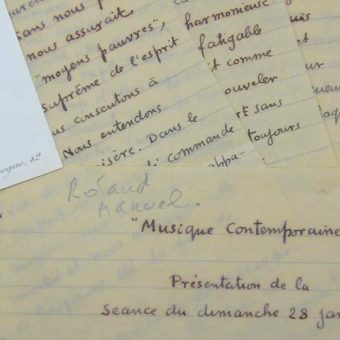 sans nous p
nous assurait.
"moyens pauvres",
suprême de l'esprit
us consentons à
Nous entendons
isère. Dans le
harmonieuse
fatigable
t comme
ouveler
et sans
commande
toujours
ogne, 42
Roland
Manuel.
"Musique Contemporaine
Présentation de la
Seance du dimanche 28 jan